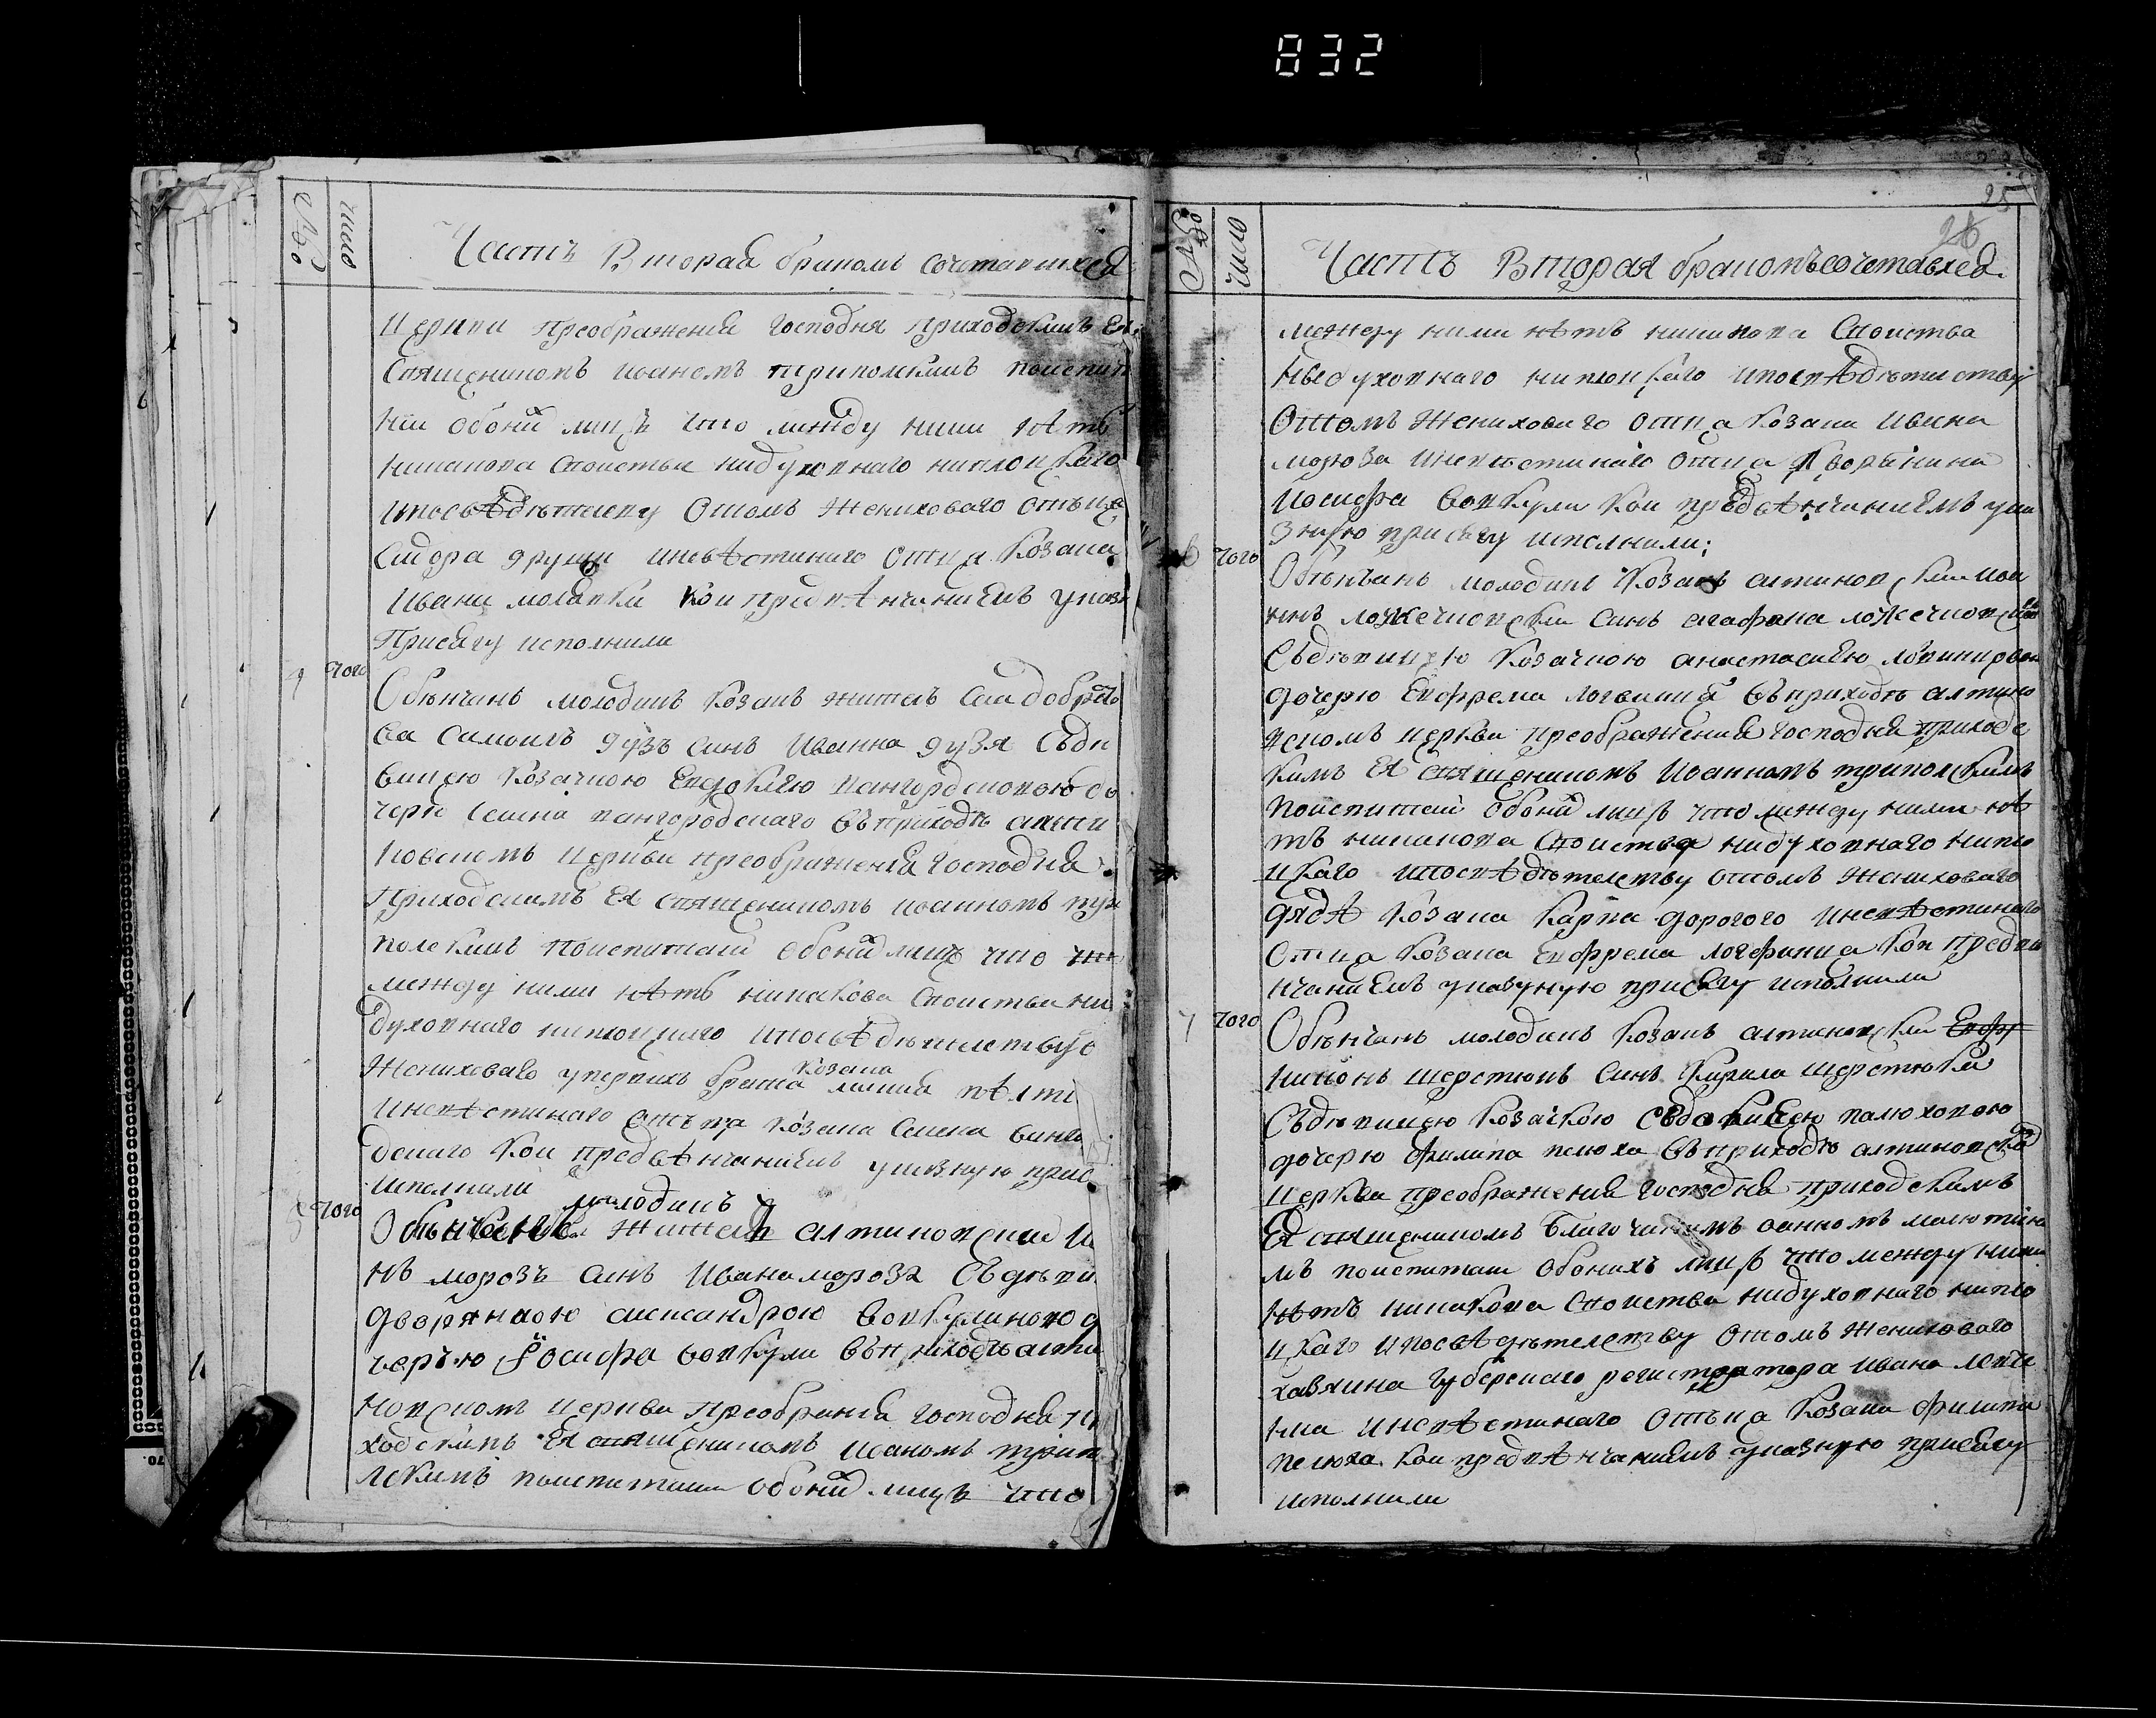 832
№
число
Часть Вторая браком сочетавшихся
Церкви Преображения Господня Приходскимъ Ея
Священикомъ Иоаномъ триполскимъ поиспит
нии обоий лицъ что между ними нѣтъ
никакова своиства нидуховнаго ниплоцкаго
ипосвѣдѣтелству Отомъ Жениховаго отъца
Сидора иневѣстинаго Отца Козака
Ивана молявки кои предвѣнчаниемъ указ
Присягу исполнили
4 того
Обвѣнчанъ молодикъ Козакъ жител
Самоилъ дузъ синъ Иванна дузя Съди
вицею Козачкою Евдокиею вангородсковою до
черю Семена вангородскаго въприходѣ алти
новскомъ Церкви преображения Господня
Приходскимъ Ея священикомъ иоанномъ три
полскимъ поиспитании обоий лицъ что
между ними нѣтъ никакова своиства ни
духовнаго ниплоцкаго ипосвѣдѣтелству о
Жениховаго брата козака
иневѣстинаго отъца козака Семена ванго
дскаго кои предвѣнчаниемъ указную прис
исполнили
молодикъ
5 того
Обвѣнчанъ Жител алтиновский И
нъ морозъ синъ Ивана мороза Съдѣви
дворянкою александрою вовкулиною д
черъю Иосифа вовкули въприходѣ алти
новскомъ церкви Преобрания Господня При
ходскимъ Ея священикомъ Иоаномъ трипо
лскимъ поиспитании обоий лицъ что
25
26
№
число
Часть Вторая бракомъ сочетавхся
между ними нѣтъ никакова Своиства
ниплоцкаго ипосвѣдѣтиству
Отомъ Жениховаго отца Козака Ивана
мороза иневѣстинаго отца Дворянина
Иосифа Вовкули Кои предвѣнчаниемъ ука
зную присягу исполнили;
6 того
Обвѣнчанъ молодикъ Козакъ алтиновский
синъ агафона
Съдѣвицею Козачкою анастасиею
дочерю Евфрема въприходѣ алтино
вскомъ церкви преображения Господня приходс
кимъ Ея священикомъ Иоанномъ триполскимъ
поиспитаний обоий лицъ что между ними нѣ
тъ никакова своиства нидуховнаго нипло
цкаго ипосвѣдѣтелству отомъ жениховаго
дядѣ Козака Карпа дорогого иневѣстинаго
отца Козака Евфрема кои предвѣ
нчаниемъ указную присягу исполнили
7 того
Обвѣнчанъ молодикъ Козакъ алтиновский Евфр
никонъ шерстюкъ синъ Кирила шерстюка
Съдѣвицею Козачкою Евдокиею пелюховою
дочерю Филипа пелюха въприходѣ алтиновской
церкви преображения Господня приходскимъ
Ея священикомъ благочинимъ оанномъ
мъ поиспитании обоихъ лицъ что между ними
нѣтъ никакова своиства нидуховнаго нипло
цкаго ипосвѣдѣтелству отомъ жениховаго
хазяина Губерскаго регистратора Ивана
иневѣстинаго отъца Козака филипа
пелюха кои предвѣнчаниемъ указную присягу
исполнили